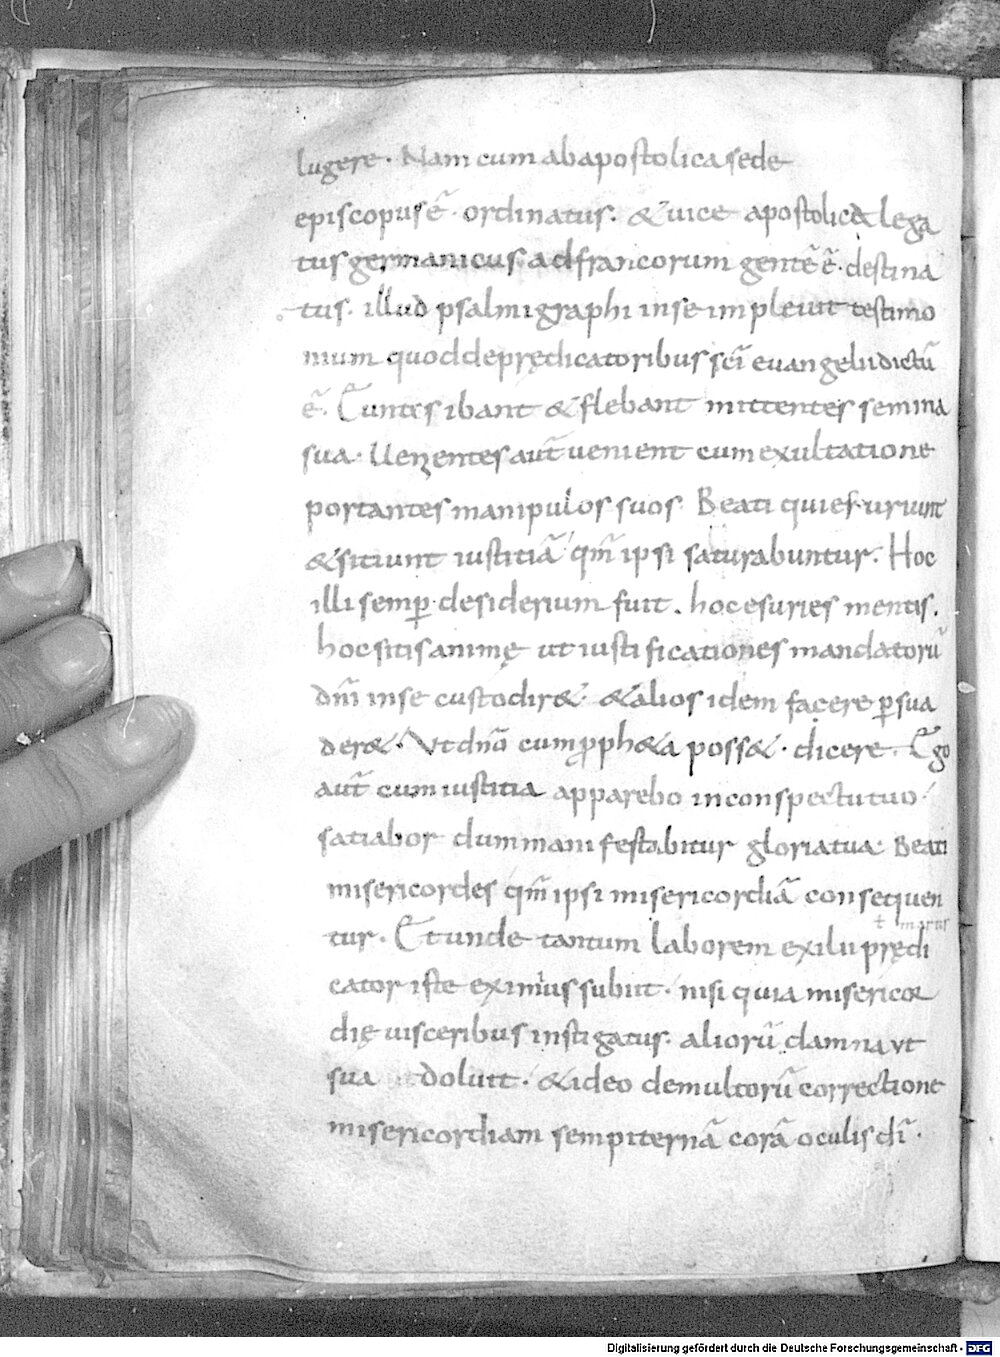 lugere. Nam cum ab apostolica sede
episcopus ē. ordinatus. & uice apostolicę lega
tus germanicus ad francorum gentē ē. destina
tus. illud psalmigraphi in se impleuit testimo
nium quod de prędicatoribus sc̄i euangelii dictū
ē. Euntes ibant & flebant mittentes semina
sua. Uenientes aut̄ uenient cum exultatione
portantes manipulos suos. Beati qui esuriunt
& sitiunt iustitiā qm̄ ipsi saturabuntur. Hoc
illi semp̄ desiderium fuit. hoc esuries mentis.
hoc sitis animę ut iustificationes mandatorū
dn̄i in se custodir&. & alios idem facere p̱sua
der&. Vt dn̄o cum p̱ph&a poss&. dicere. Ego
aut̄ cum iustitia apparebo in conspectu tuo
satiabor dum manifestabitur gloria tua. Beati
misericordes qm̄ ipsi misericordiā consequen
tur. Et unde tantum laborem exilii prędi
ł martyr
cator iste eximius subiit. nisi quia misericor
dię uisceribus instigatus. aliorū damna ut
sua doluit. & ideo de multorū correctione
misericordiam sempiternā corā oculis dī.
Digitalisierung gefördert durch die Deutsche Forschungsgemeinschaft - DFG